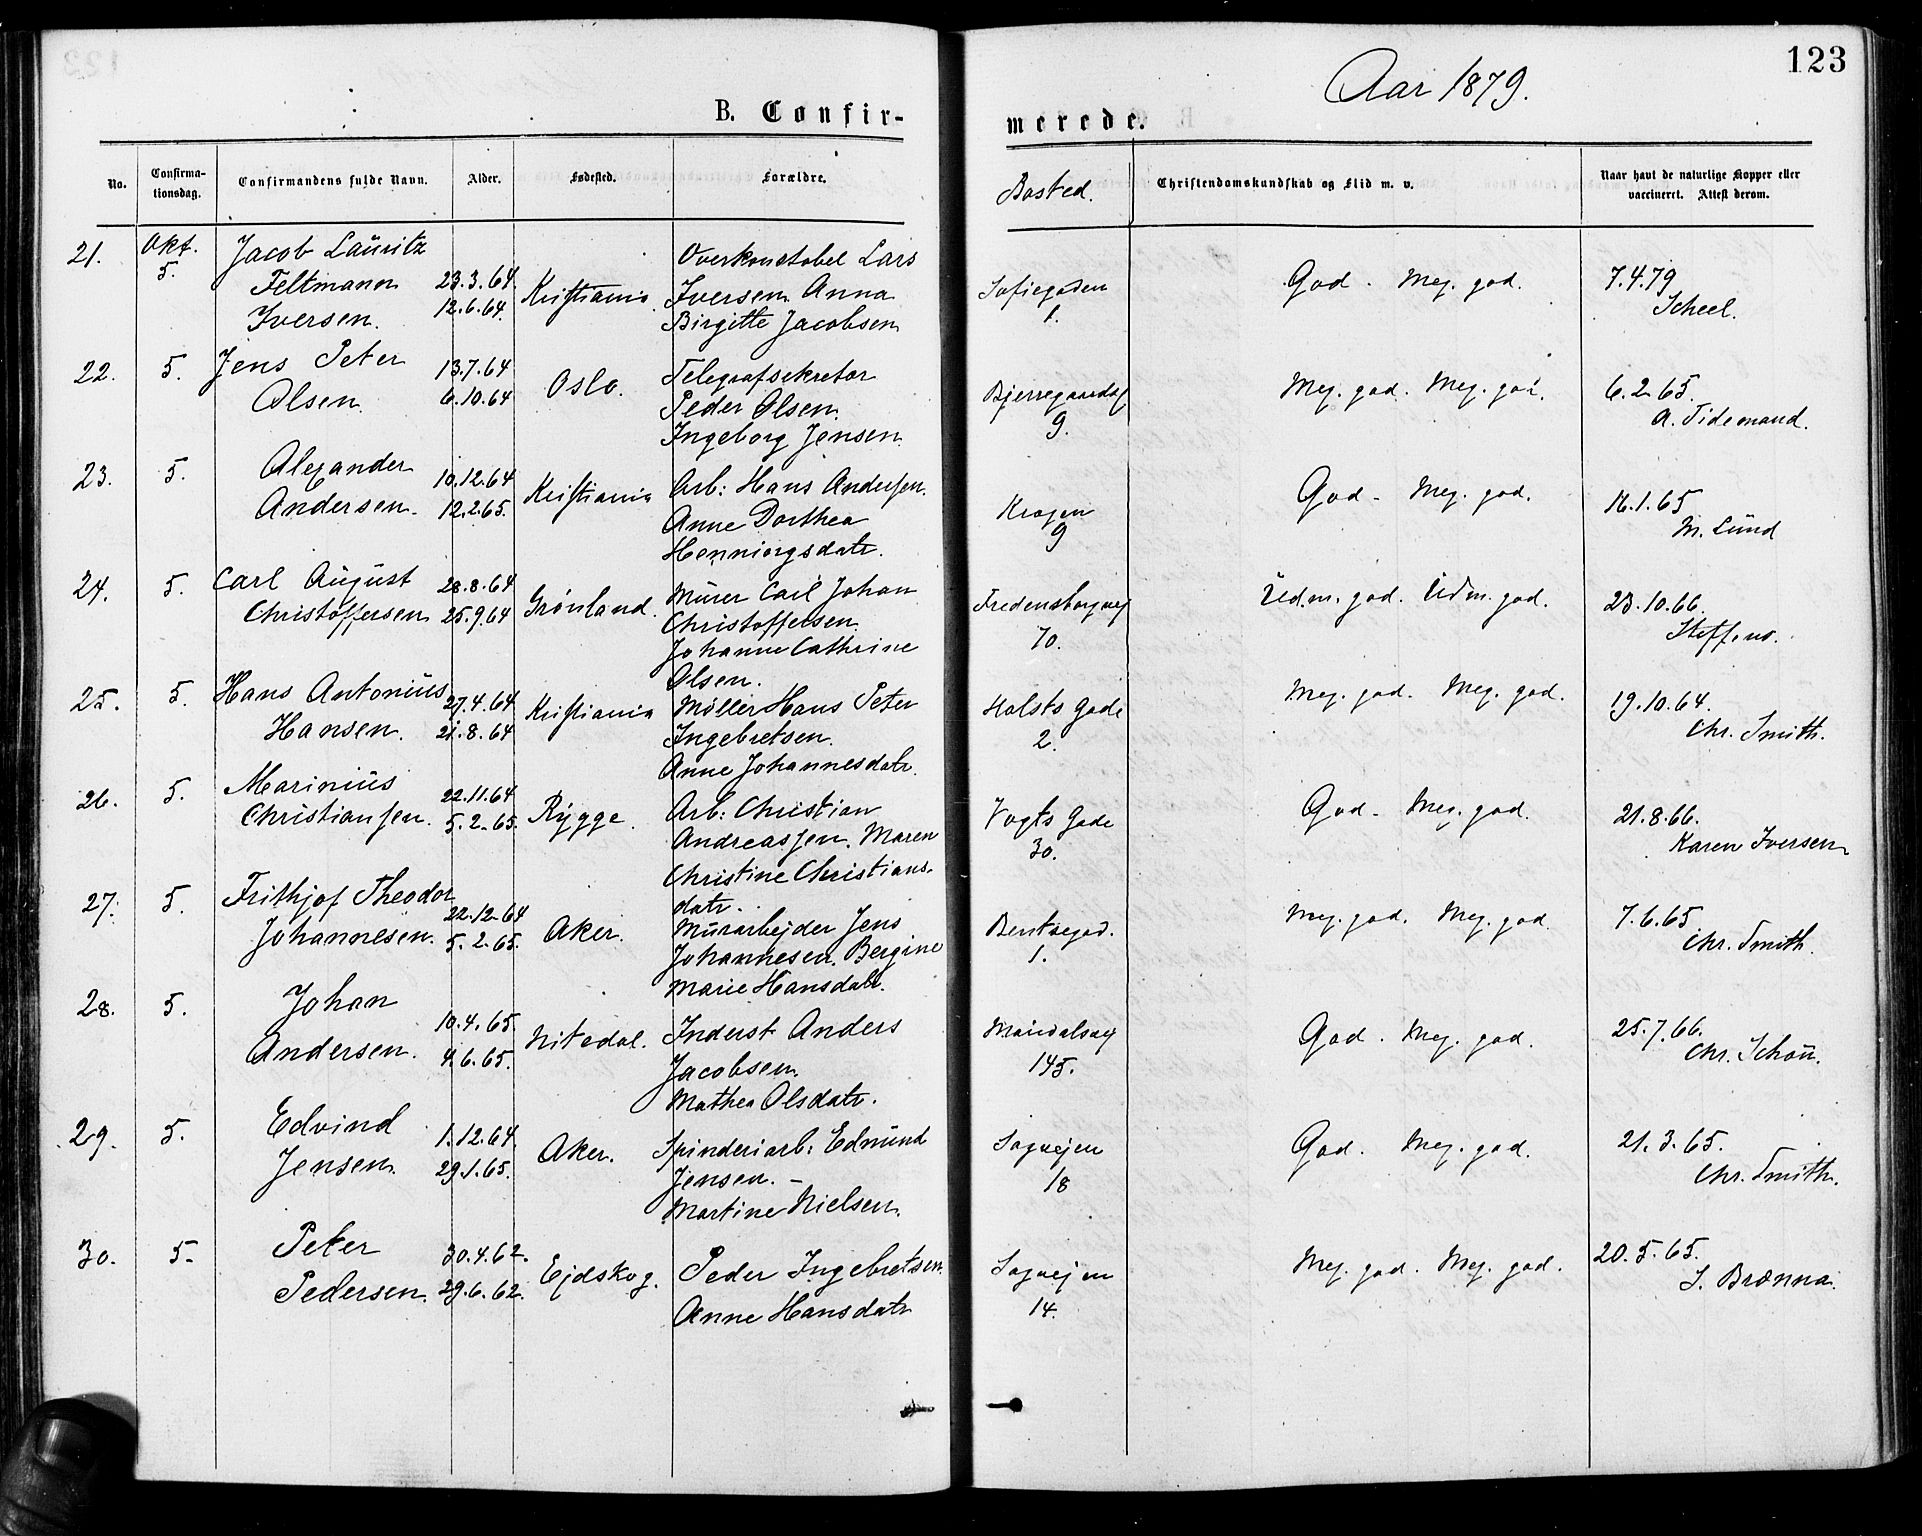 123
Aar 1879.
B. Confir-
merede.
No.
Confirma-
tionsdag.
Confirmandens fulde Navn.
Alder.
Fødested.
Forældre.
Bosted.
Christendomskundskab og Flid m. v.
Naar havt de naturlige Kopper eller
vaccineret. Attest derom.
21. Okt. 5. Jacob Lauritz Overkonstabel Lars
Feltmann 23.3.64. Kristiania Iversen Anna Sofiegaden God. Meg. god. 7.4.79
Iversen. 12.6.64. Birgitte Jacobsen 1. Scheel.
22. 5. Jens Peter 13.7.64 Oslo. Telegrafsekretær Bjerregaardsg Meg. god. Meg. god. 6.2.65.
Olsen 6.10.64 Peder Olsen. 9. A. Tidemand.
Ingeborg Jensen.
23. 5. Alexander 10.12.64 Kristiania Arb: Hans Andersen. Krogen God - Meg. god. 16.1.65
Andersen. 12.2.65. Anne Dorthea 9 M. Lund
Henningsdatr.
24. 5. Carl August 28.8.64 Grønland. Murer Carl Johan Fredensborgvej Udm. god. Udm. god. 23.10.66.
Christoffersen 25.9.64 Christoffersen 70. Steffens.
Johanne Cathrine
Olsen.
25. 5. Hans Antonius 27.4.64 Kristiania Møller Hans Peter Holsts Gade Meg. god. Meg. god. 19.10.64.
Hansen. 21.8.64 Ingebretsen. 2. Chr. Smith.
Anne Johannesdatr.
26. 5. Marinius 22.11.64 Rygge. Arb: Christian Vogts Gade God - Meg. god. 21.8.66.
Christiansen. 5.2.65. Andreassen. Maren 30. Karen Iversen
Christine Christians-
datr.
27. 5. Frithjof Theodor 22.12.64 Aker. Murarbejder Jens Bentsegad. Meg. god. Meg. god 7.6.65.
Johannesen. 5.2.65. Johannesen. Bergine 1. Chr. Smith.
Marie Hansdatr.
28. 5. Johan 10.4.65. Nitedal. Inderst Anders Maridalsvej God. Meg. god. 25.7.66.
Andersen. 4.6.65. Jacobsen. 145. Chr. Schou.
Mathea Olsdatr.
29. 5. Edvind 1.12.64. Aker. Spinderiarb: Edmund Sagvejen God. Meg. god. 21.3.65.
Jensen. 29.1.65. Jensen. - 18 Chr. Smith.
Martine Nielsen.
30. 5. Peter 30.4.62. Ejdskog. Peder Ingebretsen. Sagvejen Meg. god. Meg. god. 20.5.65.
Pedersen. 29.6.62. Anne Hansdatr 14. S. Brænna.